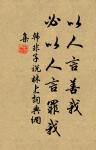 以人言善我
必以人言罪我
韩非子说林上词典网
集